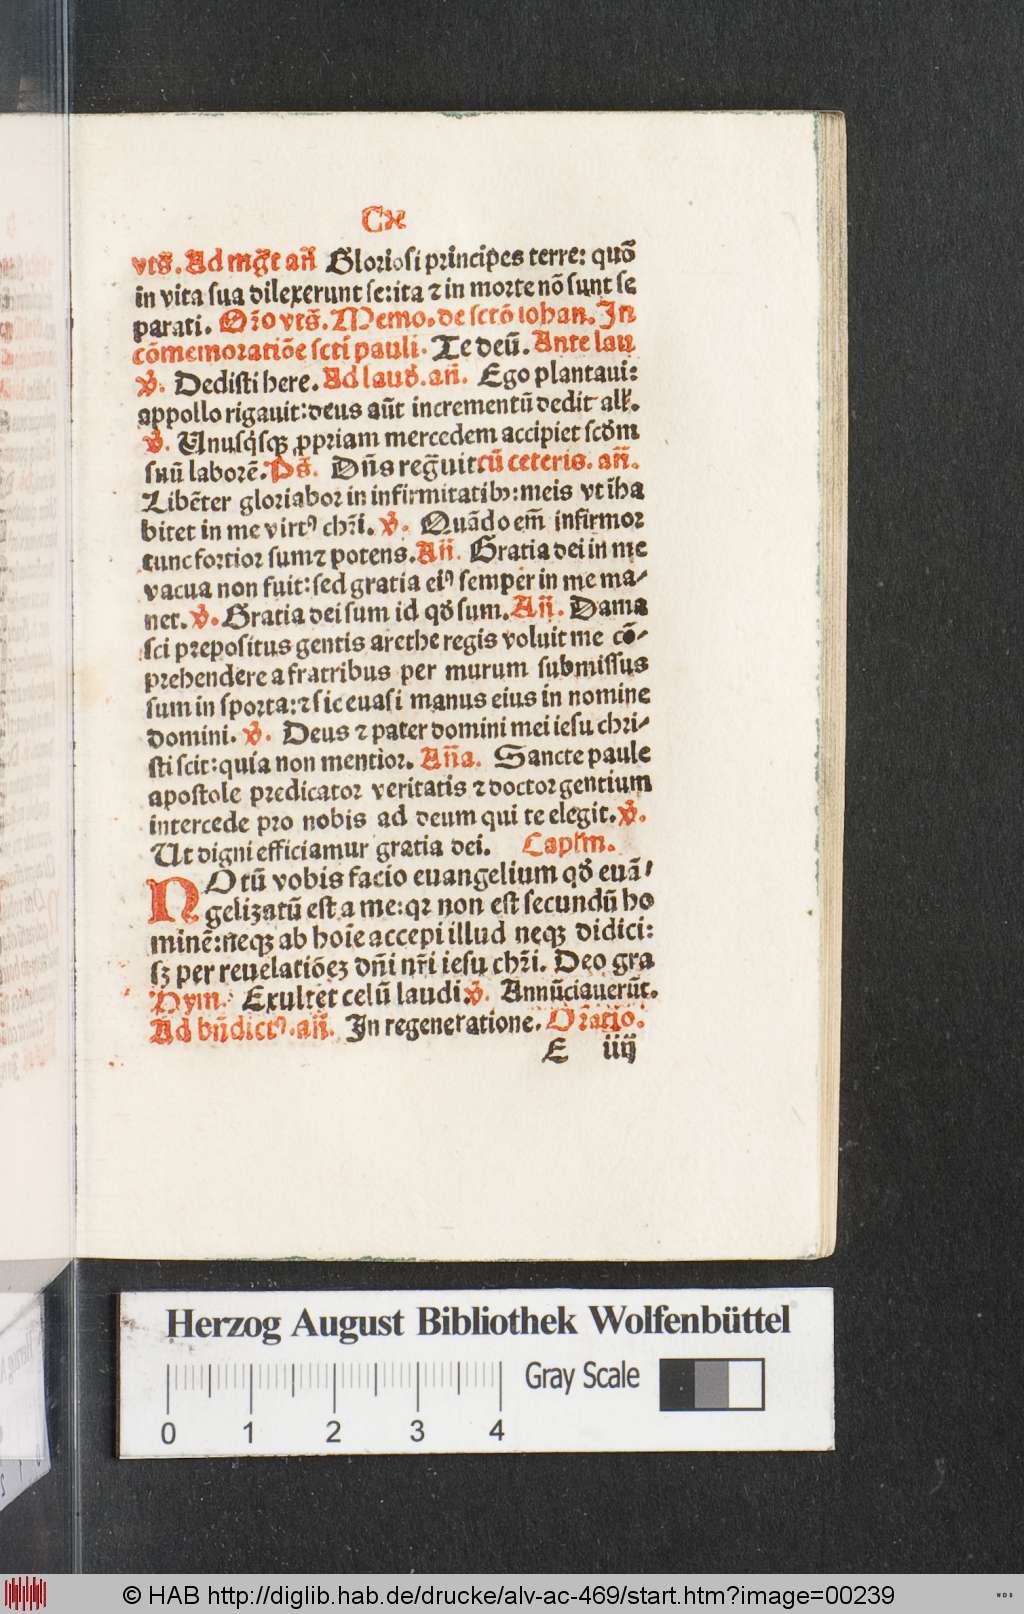 Cx
vts̄. Ad mḡt an̄ Gloriosi principes terre: quō
in vita sua dilexerunt se:ita ⁊ in morte nō sunt se
parati. Or̄o vts̄. Memo. de sctō iohan. In
cōmemoratiōe scti pauli. Te deū. Ante lau
v̄. Dedisti here. Ad laud̄. an̄. Ego plantaui:
appollo rigauit:deus aūt incrementū dedit all.
v̄. Unusq̇sqꝫ ꝓpriam mercedem accipiet scd̄m
suū laborē. Ps̄. Dn̄s regn̄uit cū ceteris. an̄.
Libēter gloriabor in infirmitatibꝫ:meis vt īha
bitet in me virtꝰ chr̄i. v̄. Quādo em̄ infirmor
tunc fortior sum ⁊ potens. An̄. Gratia dei in me
vacua non fuit:sed gratia eiꝰ semper in me ma⸗
net. v̄. Gratia dei sum id qd̄ sum. An̄. Dama
sci prepositus gentis arethe regis voluit me cō⸗
prehendere a fratribus per murum submissus
sum in sporta:⁊ sic euasi manus eius in nomine
domini. v̄. Deus ⁊ pater domini mei iesu chri⸗
sti scit:quia non mentior. An̄a. Sancte paule
apostole predicator veritatis ⁊ doctor gentium
intercede pro nobis ad deum qui te elegit. v̄.
Ut digni efficiamur gratia dei. Capl̄m.
NOtū vobis facio euangelium qd̄ euā⸗
gelizatū est a me:qꝛ non est secundū ho
minē:neqꝫ ab hoīe accepi illud neqꝫ didici:
sꝫ per reuelatiōeꝫ dn̄i nr̄i iesu chr̄i. Deo gra
Hym. Exultet celū laudi v̄. Annūciauerūt.
Ad bn̄dictꝰ. an̄. In regeneratione. Oratio.
E iiij
Herzog August Bibliothek Wolfenbüttel
Gray Scale
0 1 2 3 4
© HAB http://diglib.hab.de/drucke/alv-ac-469/start.htm?image=00239